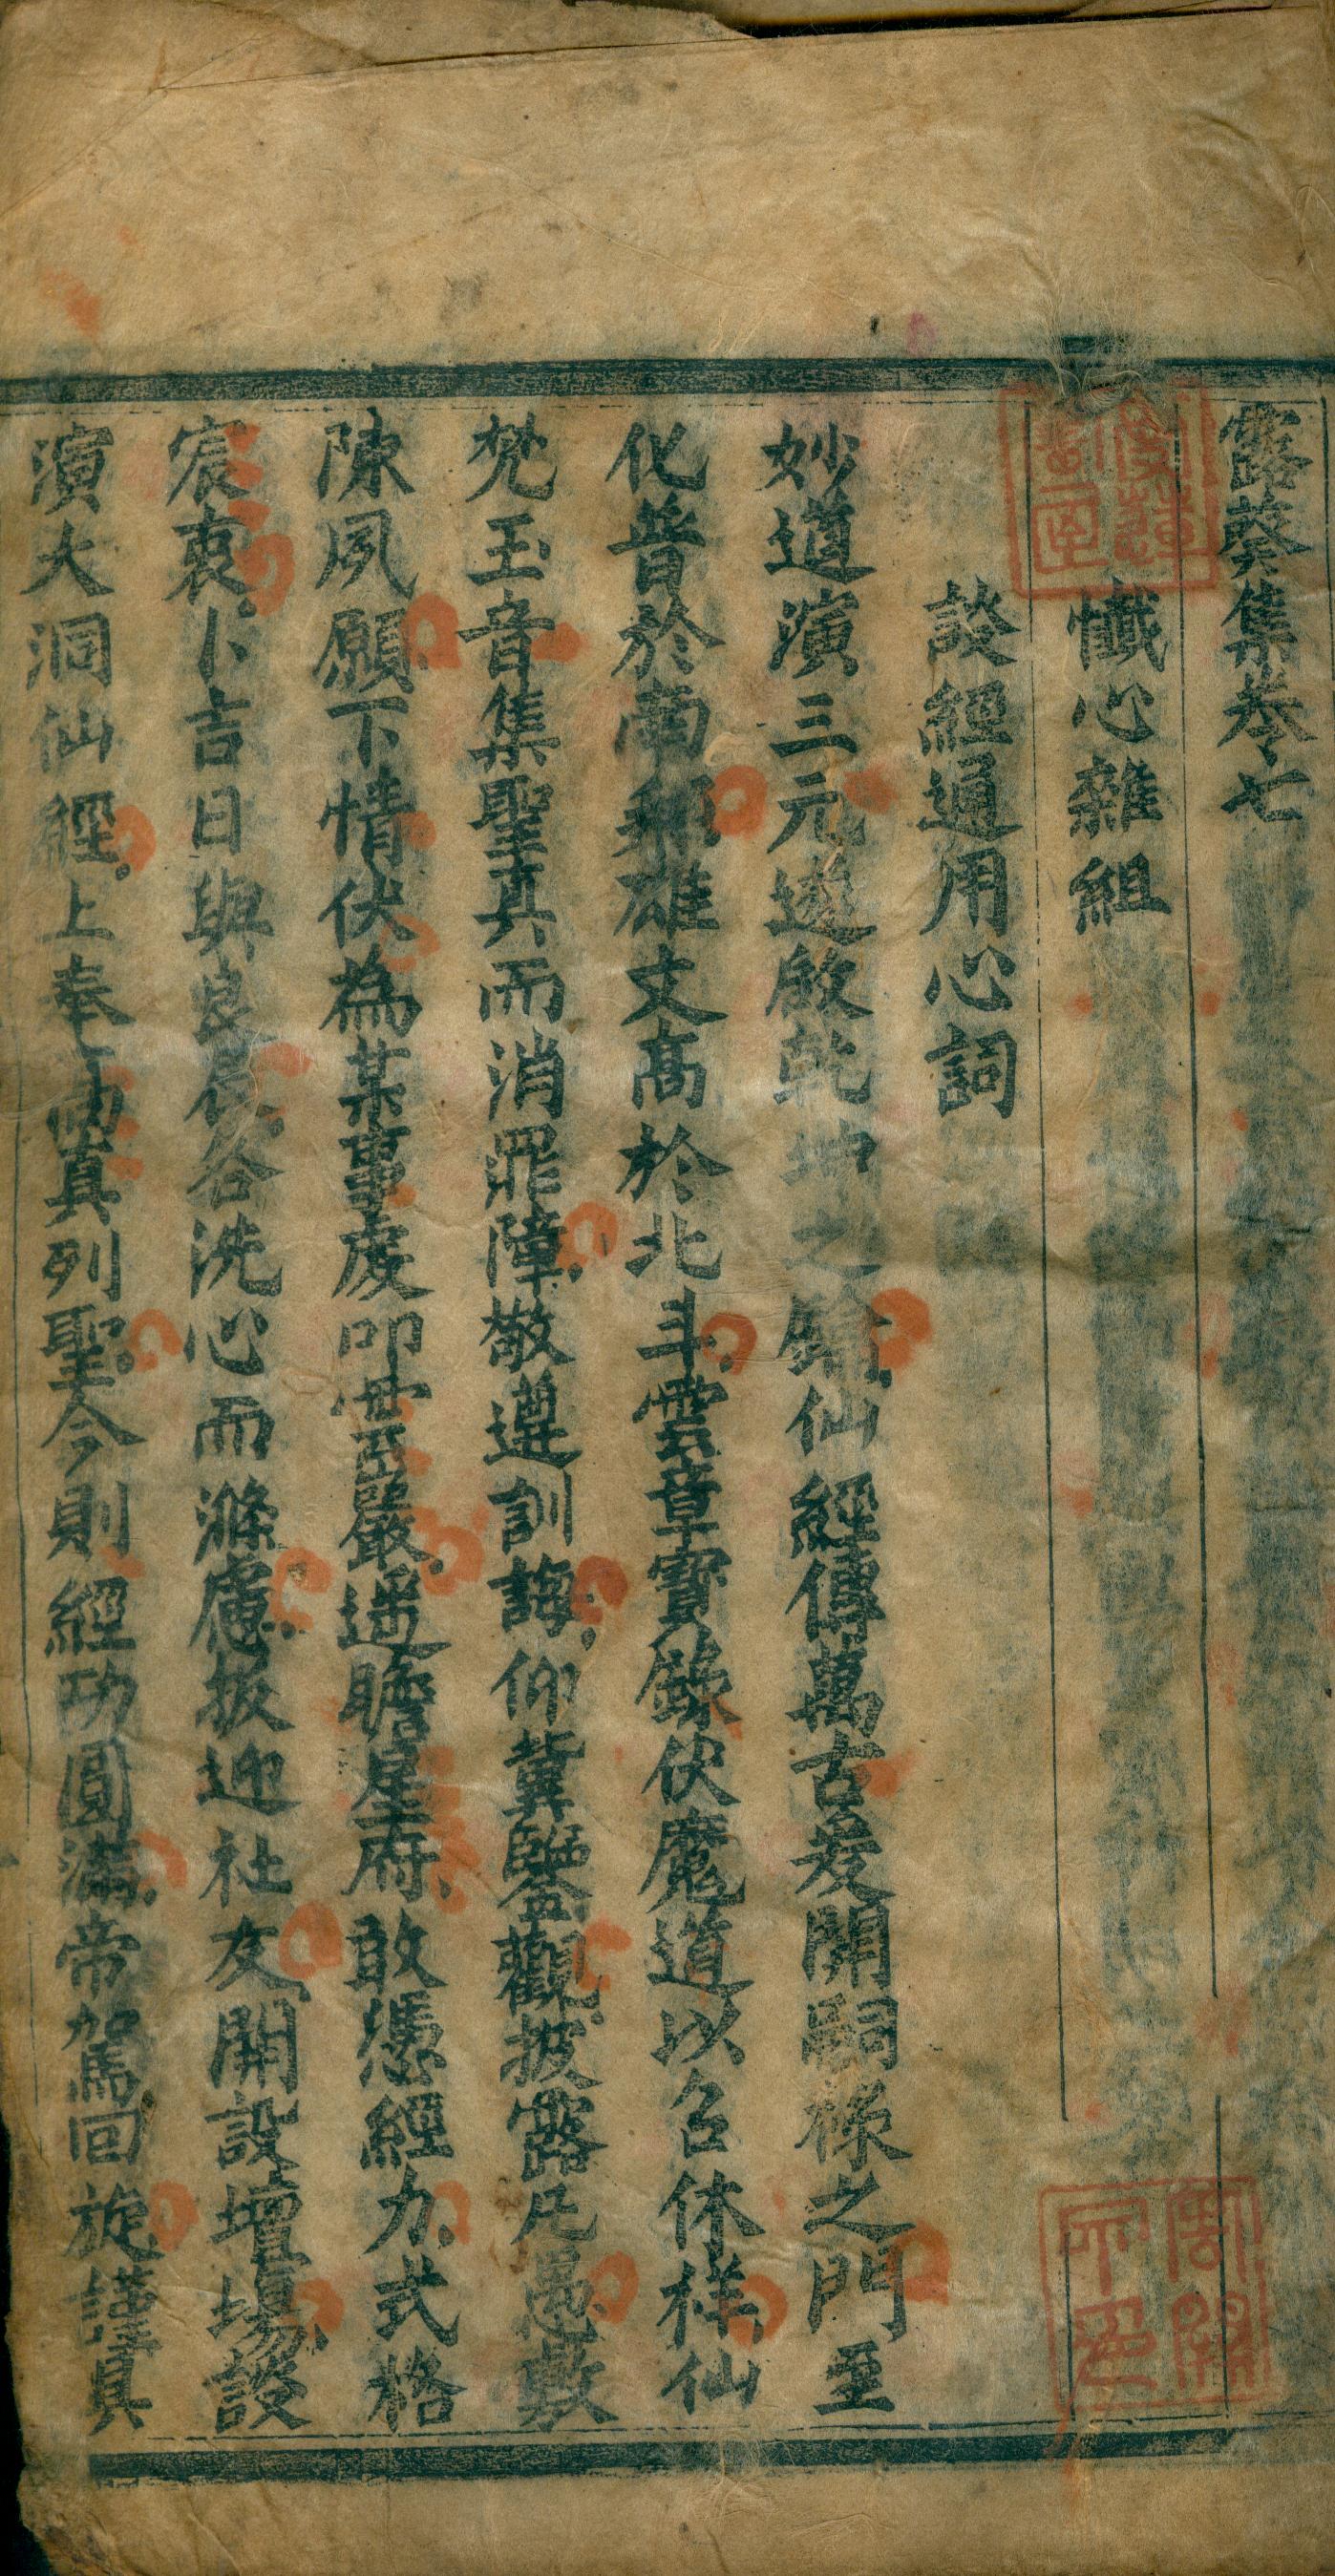 露葵集卷七
懺心雜組
談經通用心詞
妙道演三元邃啟乾坤之鑰仙經傳萬古爰開嗣祿之門至
化普於南　雄文高於北斗雲章寶籙伏魔道以召休祥仙
梵玉音集聖真而消罪障敬遵訓誨仰冀鑒觀披露凡愚敷
陳夙願下情伏為某事虔叩雲嚴遙瞻星府敢憑經力式格
宸衷卜吉日與良辰各洗心而滌慮扳迎社友開設壇場設
演大洞仙經上奉　真列聖今則經功圓滿帝駕回旋謹具